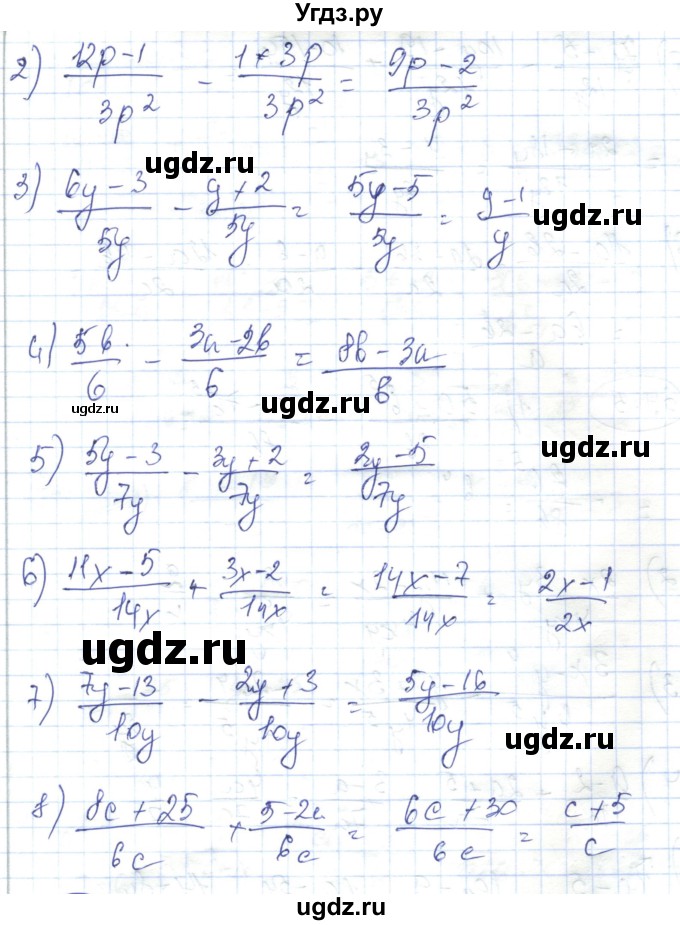 Угдз.ру
2) (12p-1)/(3p²) - (1+3p)/(3p²) = (9p-2)/(3p²)
ugdz.ru
3) (6y-3)/(5y) - (y+2)/(5y) = (5y-5)/(5y) = (y-1)/y
ugdz.ru
ugdz.ru
4) 5b/6 - (3a-2b)/6 = (8b-3a)/6
ugdz.ru
ugdz.ru
5) (5y-3)/(7y) - (3y+2)/(7y) = (2y-5)/(7y)
ugdz.ru
6) (11x-5)/(14x) + (3x-2)/(14x) = (14x-7)/(14x) = (2x-1)/(2x)
ugdz.ru
7) (7y-13)/(10y) - (2y+3)/(10y) = (5y-16)/(10y)
ugdz.ru
8) (8c+25)/(6c) + (5-2c)/(6c) = (6c+30)/(6c) = (c+5)/c
ugdz.ru
ugdz.ru